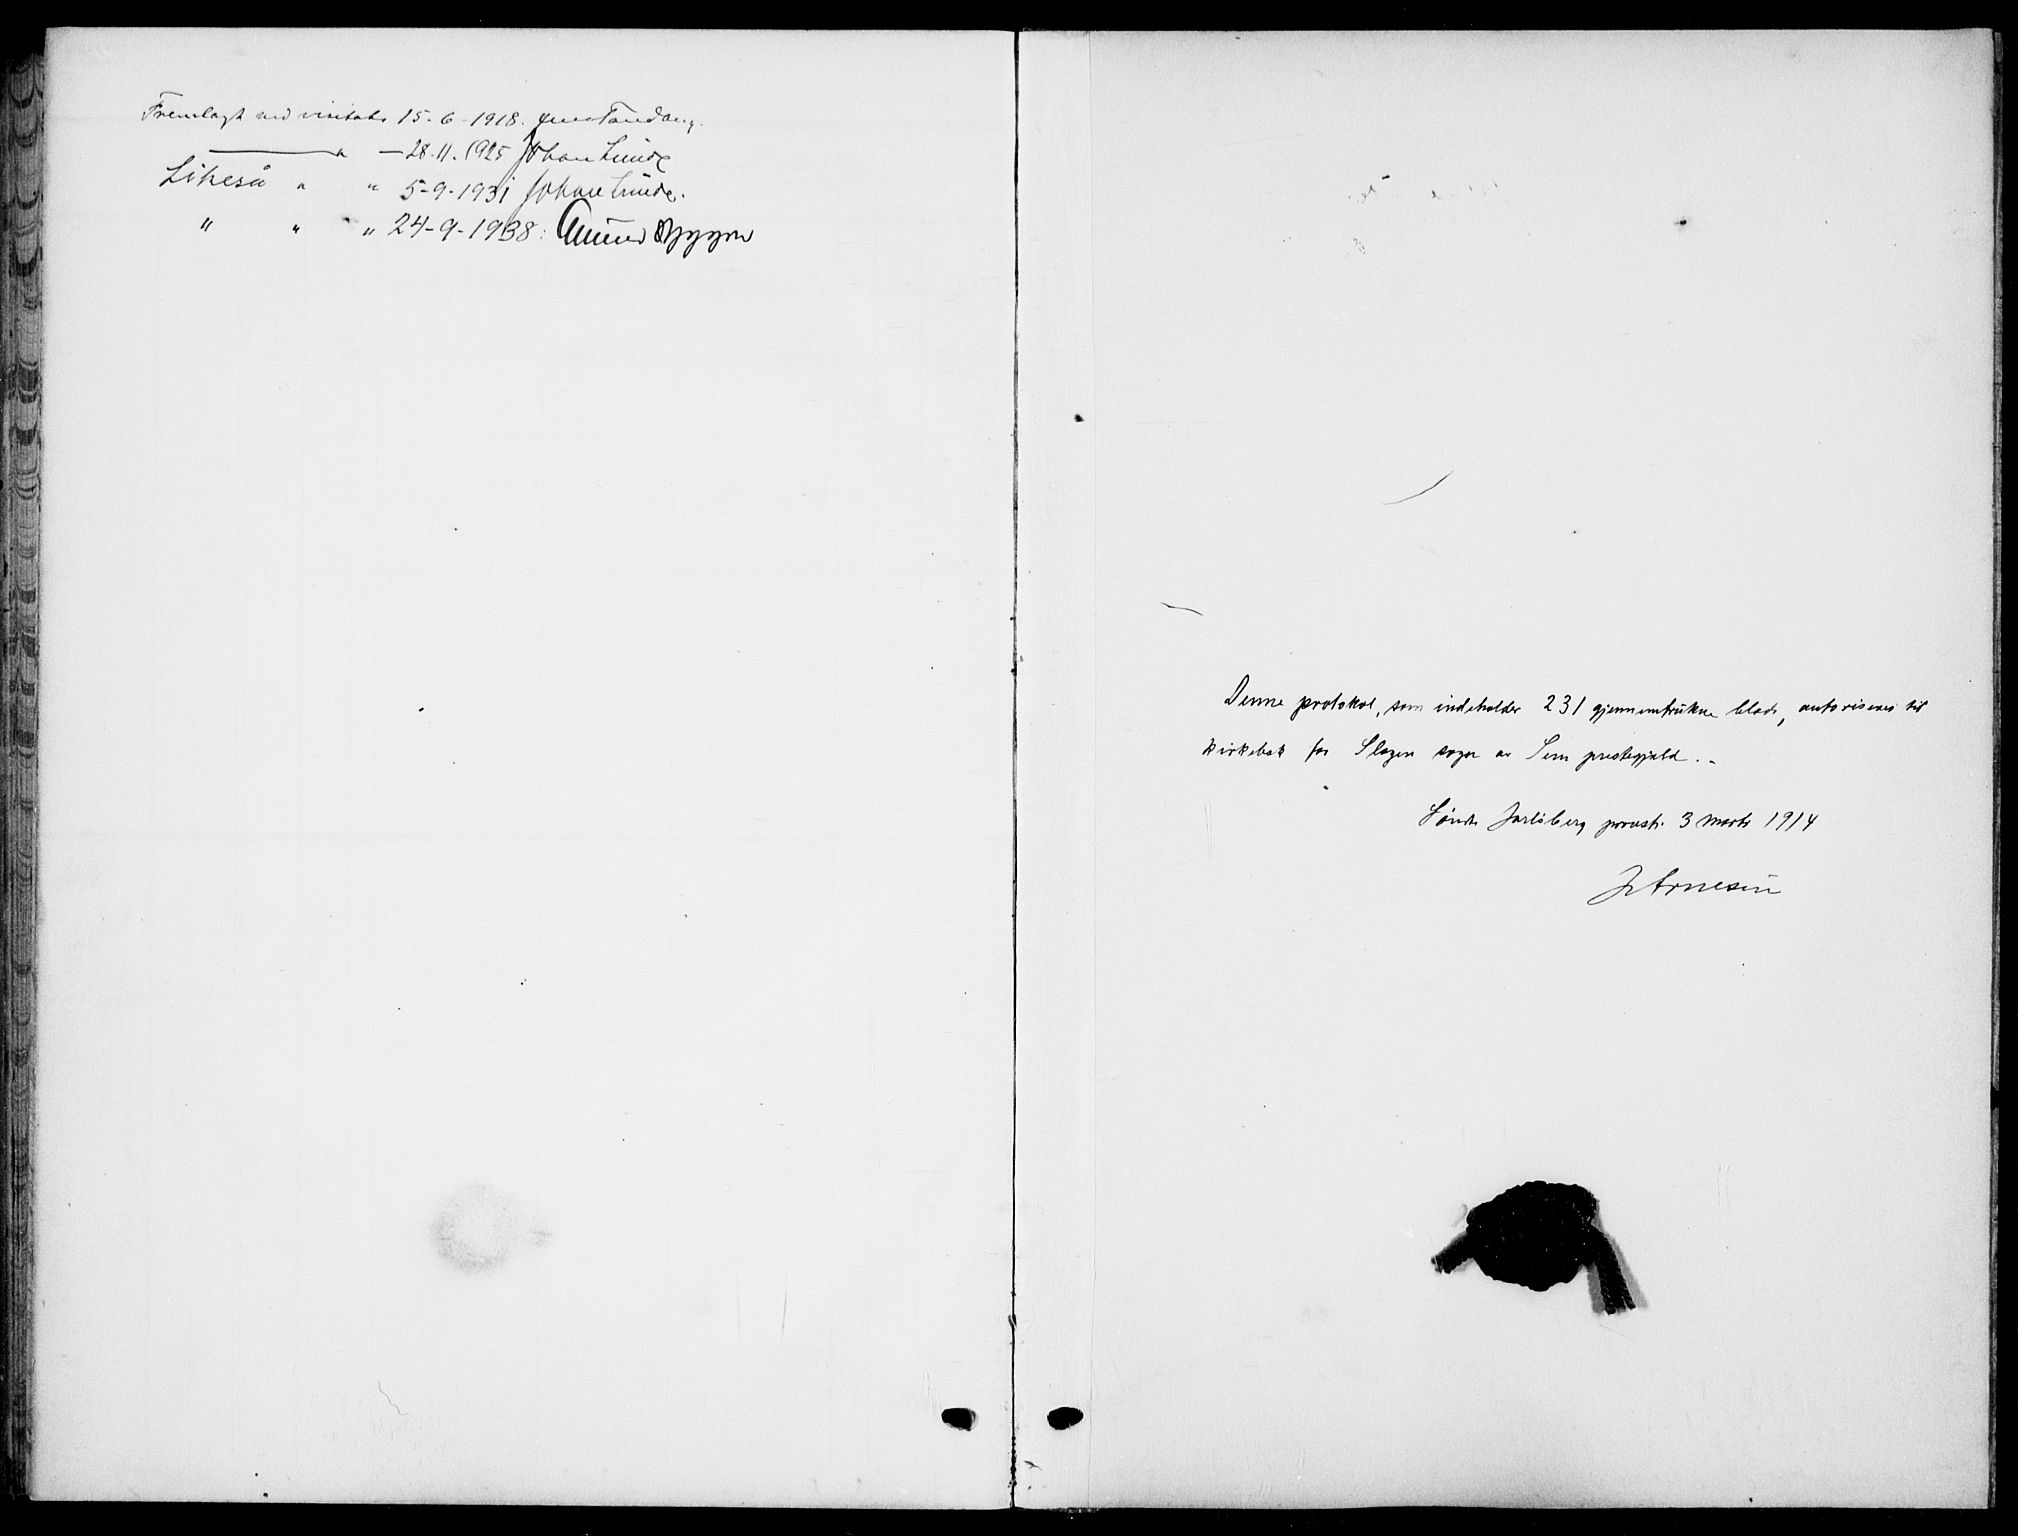 Fremlagt ved visitats 15-6-1918. Jens Tandberg.
——— " — 28.11.1925 Johan Lunde
Likeså " " 5-9-1931 Johan Lunde.
" " " 24-9-1938:
Denne protokol, som indeholder 231 gjennemtrukne blade, autoriseres til
kirkebok for Slagen sogn av Sem prestegjeld. -
Søndre Jarlsberg provsti 3 marts 1914
J Arnesen